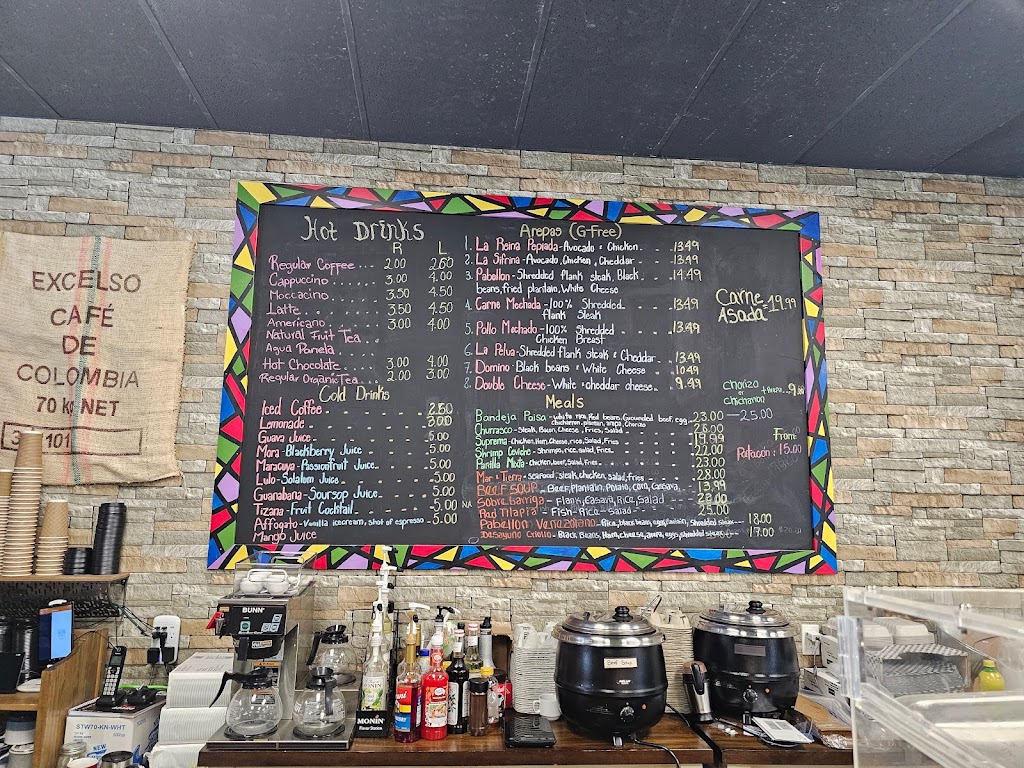 EXCELSO
CAFÉ
DE
COLOMBIA
70 kg NET
101
Hot Drinks
R L
Regular Coffee... 2.00 2.60
Cappuccino.... 3.00 4.00
Moccacino.... 3.50 4.50
Latte.. 3.50 4.50
Americano... 3.00 4.00
Natural Fruit Tea...
Agua Panela....
Hot Chocolate..... 3.00 4.00
Regular Organic Tea... 2.00 3.00
Cold Drinks
Iced Coffee -
Lemonade - 3.00
Guava Juice - 5.00
Mora - Blackberry Juice - 5.00
Maracuya - Passionfruit Juice.. 5.00
Lulo - Solatom Juice - 5.00
Guanabana - Soursop Juice - 5.00
Tizana - Fruit Cocktail - 5.00 NA
Affogato - Vanilla icecream, shot of espresso - 5.00
Mango Juice
Arepas (G-Free)
1. La Reina Pepiada - Avocado & Chicken. - - 13.49
2. La Sifrina - Avocado, Chicken, Cheddar - - 13.49
3. Pabellon - Shredded flank steak, Black - - 14.49
beans, fried plantain, White Cheese
4. Carne Mechada - 100% Shredded - - 13.49
flank Steak
5. Pollo Mechado - 100% Shredded - - 13.49
Chicken Breast
6. La Pelua - Shredded flank steak & Cheddar - 13.49
7. Domino - Black beans & White Cheese 10.49
8. Double Cheese - White & cheddar cheese - 9.49
Carne
Asada - 19.99
Chorizo
Chicharron
- 25.00
From:
15.00
Meals
Bandeja Paisa - white rice, Red beans, Grounded beef, egg 23.00
chicharron, plantain, arepa, Chorizo
Churrasco - Steak, Bacon, Cheese, Fries, Salad 28.00
Suprema - Chicken, Ham, Cheese, rice, Salad, Fries 19.99
Shrimp Ceviche - Shrimps, rice, salad, Fries 22.00
Parrilla Mixta - Chicken, beef, Salad, Fries 23.00
Mar & Tierra - seafood, steak, chicken, salad, fries 28.00
BEEF SOUP - Beef, Plantain, Potato, Corn, Cassava 13.99
Sobrebarriga - Flank, Casava, Rice, Salad 20.00
Red Tilapia - Fish - Rice - Salad 25.00
Pabellon Venezolano - Rice, black beans, egg, plantain, Shredded steak 18.00
Desayuno Criollo - Black Beans, Ham, cheese, arepa, eggs, shredded steak 17.00
BUNN
MONIN
Beef Soup
STW70-KN-WHT
NEW